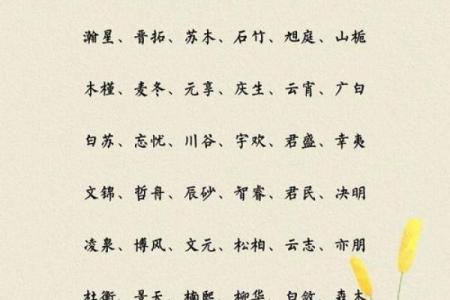 瀚星、晋拓、苏木、石竹、旭庭、山栀
木槿、麦冬、元享、庆生、云宵、广白
白苏、忘忧、川谷、宇欢、君盛、幸夷
文锦、哲舟、辰砂、智睿、君民、决明
凌泉、博风、文元、松柏、云志、亦朋
杜衡、景天、楠熙、柳华、白敛、森木